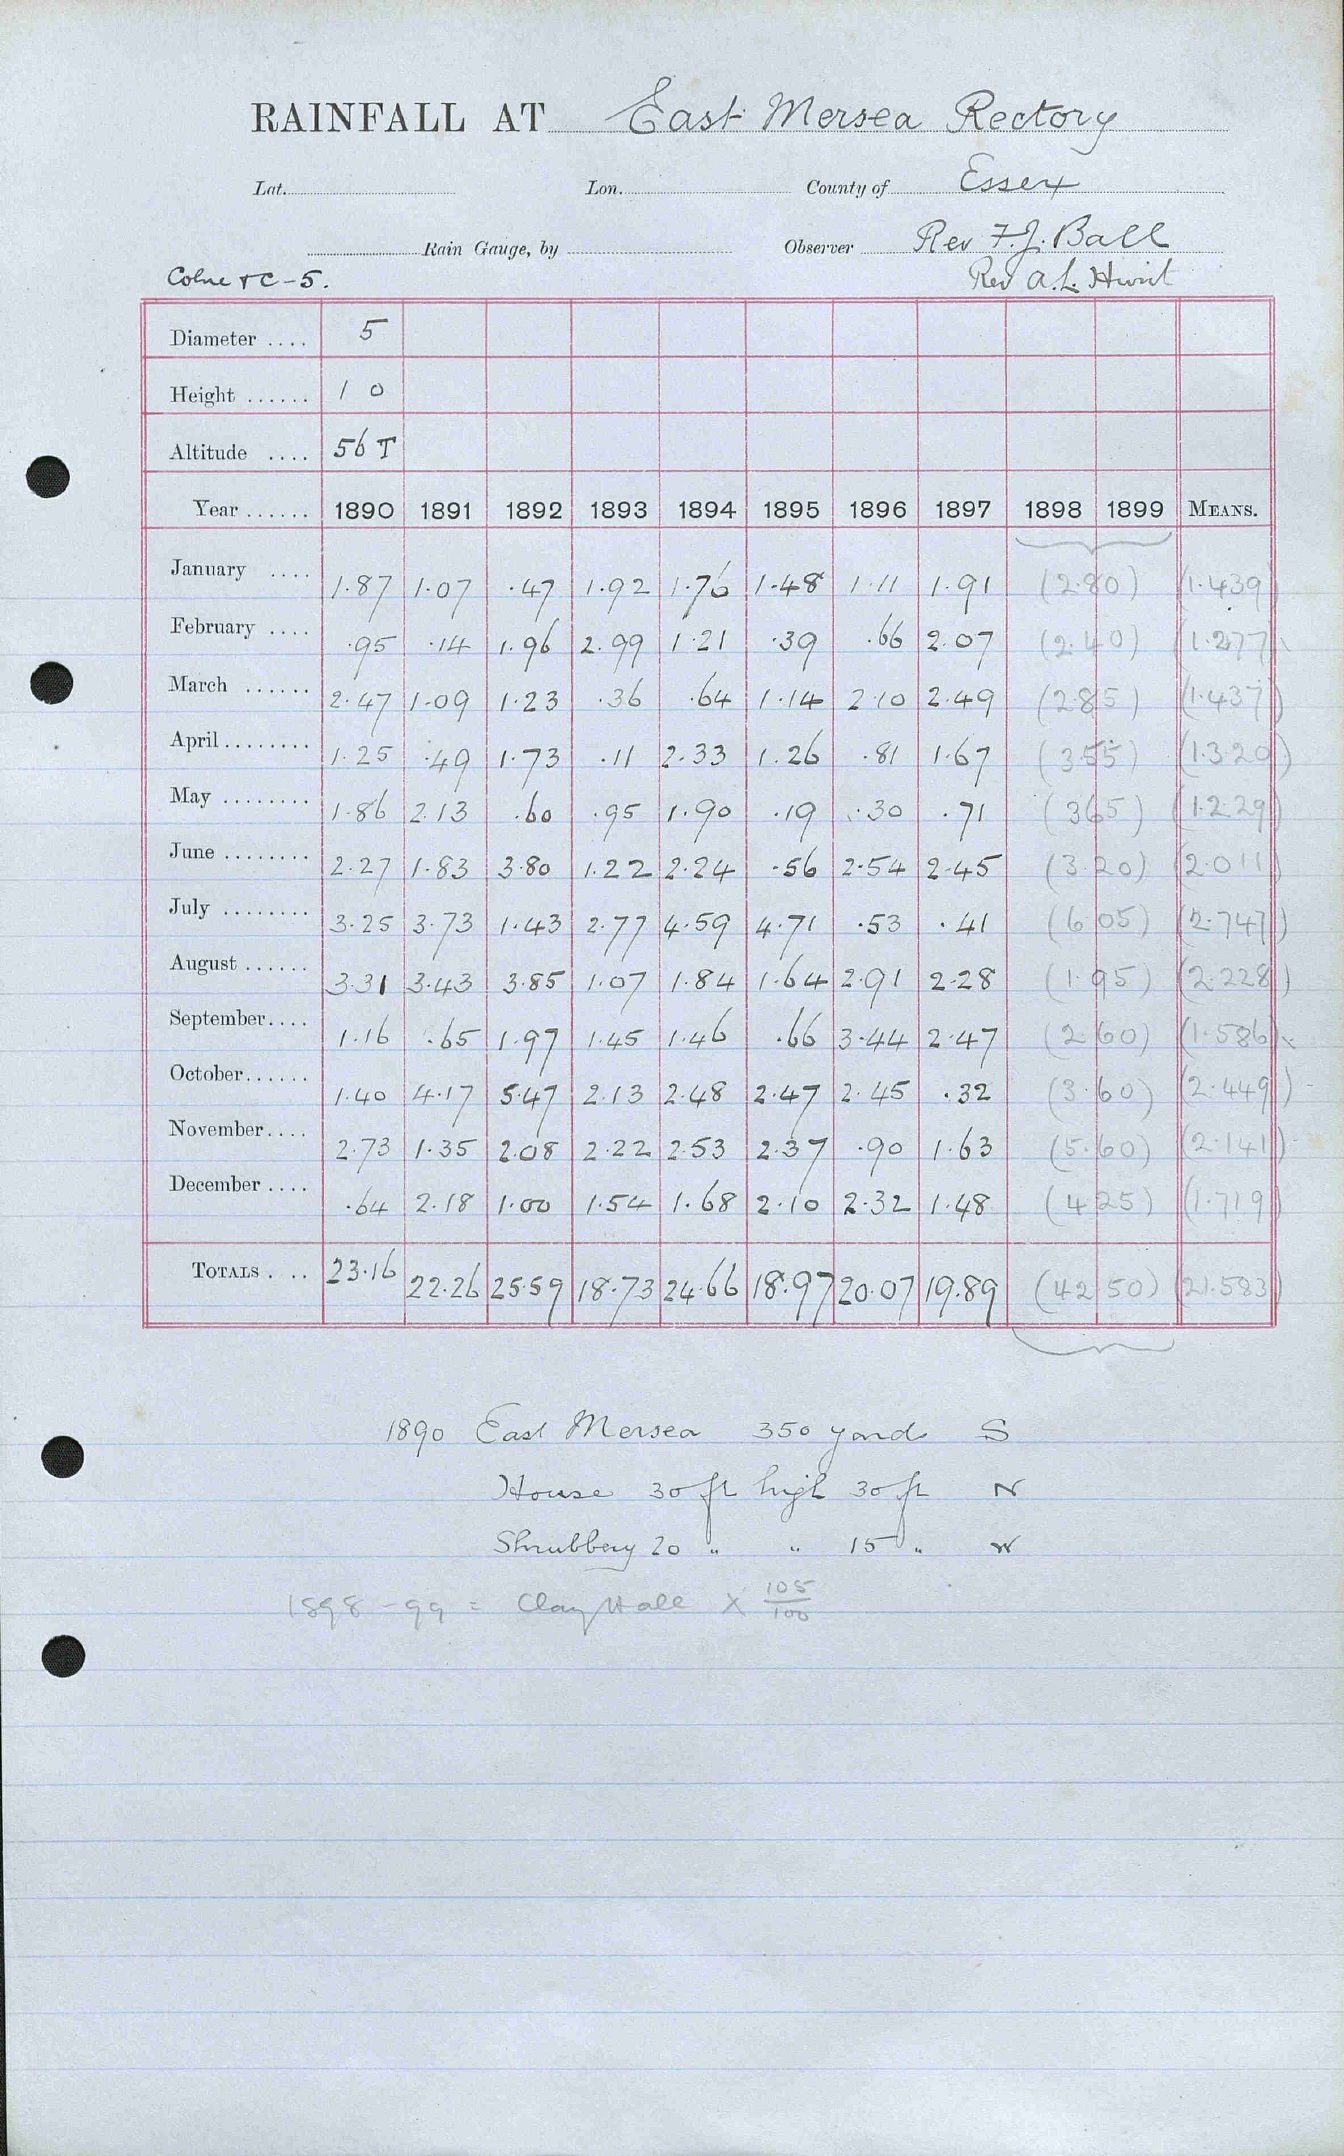 RAINFALL AT East Mersea Rectory
Lat. Lon. County of Essex
Rain Gauge, by Observer Rev F.J. Ball
Colne & C-5. Rev A.L. Hunt
Diameter .... 5
Height ...... 1 0
Altitude .... 56 T
Year ...... 1890 1891 1892 1893 1894 1895 1896 1897 1898 1899 MEANS.
January .... 1.87 1.07 .47 1.92 1.76 1.48 1.11 1.91 (2.80) (1.439)
February .... .95 .14 1.96 2.99 1.21 .39 .66 2.07 (2.40) (1.277)
March ...... 2.47 1.09 1.23 .36 .64 1.14 2.10 2.49 (2.85) (1.437)
April ........ 1.25 .49 1.73 .11 2.33 1.26 .81 1.67 (3.55) (1.320)
May ........ 1.86 2.13 .60 .95 1.90 .19 .30 .71 (3.65) (1.229)
June ........ 2.27 1.83 3.80 1.22 2.24 .56 2.54 2.45 (3.20) (2.011)
July ........ 3.25 3.73 1.43 2.77 4.59 4.71 .53 .41 (6.05) (2.747)
August ...... 3.31 3.43 3.85 1.07 1.84 1.64 2.91 2.28 (1.95) (2.228)
September.... 1.16 .65 1.97 1.45 1.46 .66 3.44 2.47 (2.60) (1.586)
October...... 1.40 4.17 5.47 2.13 2.48 2.47 2.45 .32 (3.60) (2.449)
November.... 2.73 1.35 2.08 2.22 2.53 2.37 .90 1.63 (5.60) (2.141)
December .... .64 2.18 1.00 1.54 1.68 2.10 2.32 1.48 (4.25) (1.719)
TOTALS .... 23.16 22.26 25.59 18.73 24.66 18.97 20.07 19.89 (42.50) (21.583)
1890 East Mersea 350 yards S
House 30 ft high 30 ft N
Shrubbery 20 " " 15 " W
1898-99 = Clay Hall X 105/100